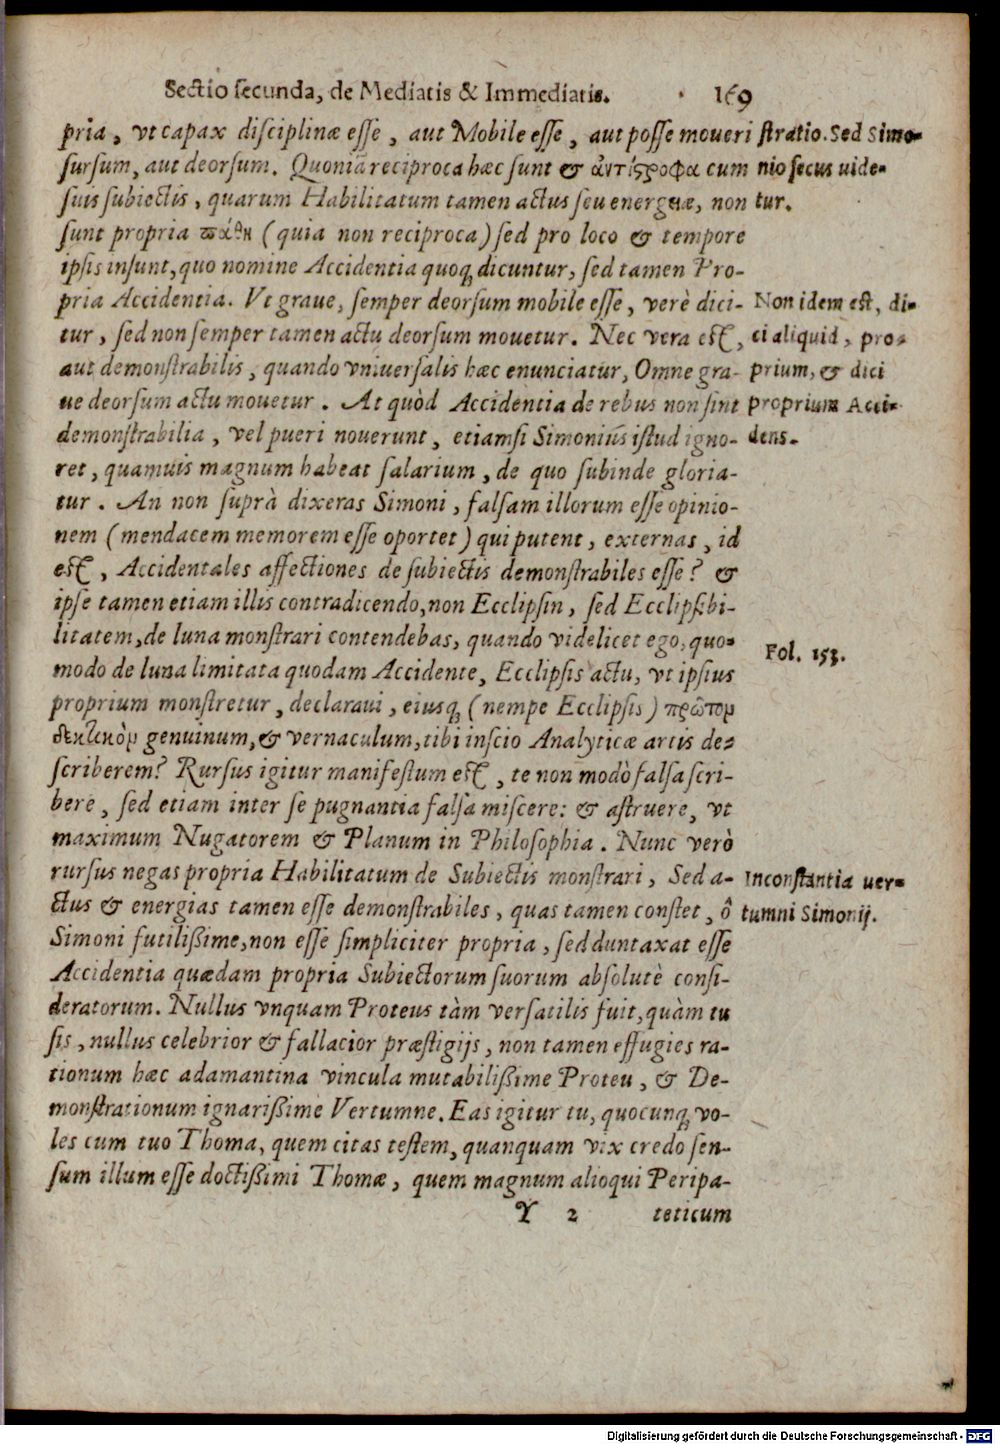 Sectio secunda, de Mediatis & Immediatis. 169
pria, vt capax disciplinæ esse, aut Mobile esse, aut posse moueri
sursum, aut deorsum. Quoniã reciproca hæc sunt & ἀντίϛροφα cum
suis subiectis, quarum Habilitatum tamen actus seu energeiæ, non
sunt propria πάθη (quia non reciproca) sed pro loco & tempore
ipsis insunt, quo nomine Accidentia quoq; dicuntur, sed tamen Pro-
pria Accidentia. Vt graue, semper deorsum mobile esse, verè dici-
tur, sed non semper tamen actu deorsum mouetur. Nec vera est,
aut demonstrabilis, quando vniuersalis hæc enunciatur, Omne gra-
ue deorsum actu mouetur. At quòd Accidentia de rebus non sint
demonstrabilia, vel pueri nouerunt, etiamsi Simonius istud igno-
ret, quamuis magnum habeat salarium, de quo subinde gloria-
tur. An non suprà dixeras Simoni, falsam illorum esse opinio-
nem (mendacem memorem esse oportet) qui putent, externas, id
est, Accidentales affectiones de subiectis demonstrabiles esse? &
ipse tamen etiam illis contradicendo, non Ecclipsin, sed Ecclipsibi-
litatem, de luna monstrari contendebas, quando videlicet ego, quo-
modo de luna limitata quodam Accidente, Ecclipsis actu, vt ipsius
proprium monstretur, declaraui, eiusq; (nempe Ecclipsis) πρῶτον
δεκτικὸν genuinum, & vernaculum, tibi inscio Analyticæ artis de-
scriberem? Rursus igitur manifestum est, te non modò falsa scri-
bere, sed etiam inter se pugnantia falsa miscere: & astruere, vt
maximum Nugatorem & Planum in Philosophia. Nunc verò
rursus negas propria Habilitatum de Subiectis monstrari, Sed a-
ctus & energias tamen esse demonstrabiles, quas tamen constet, ô
Simoni futilißime, non esse simpliciter propria, sed duntaxat esse
Accidentia quædam propria Subiectorum suorum absolutè consi-
deratorum. Nullus vnquam Proteus tàm versatilis fuit, quàm tu
sis, nullus celebrior & fallacior præstigijs, non tamen effugies ra-
tionum hæc adamantina vincula mutabilißime Proteu, & De-
monstrationum ignarißime Vertumne. Eas igitur tu, quocunq; vo-
les cum tuo Thoma, quem citas testem, quanquam vix credo sen-
sum illum esse doctißimi Thomæ, quem magnum alioqui Peripa-
Y 2 teticum
stratio. Sed Simo-
nio secus uide-
tur.
Non idem est, di-
ci aliquid, pro-
prium, & dici
proprium Acci-
dens.
Fol. 153.
Inconstantia uer-
tumni Simonij.
Digitalisierung gefördert durch die Deutsche Forschungsgemeinschaft - DFG